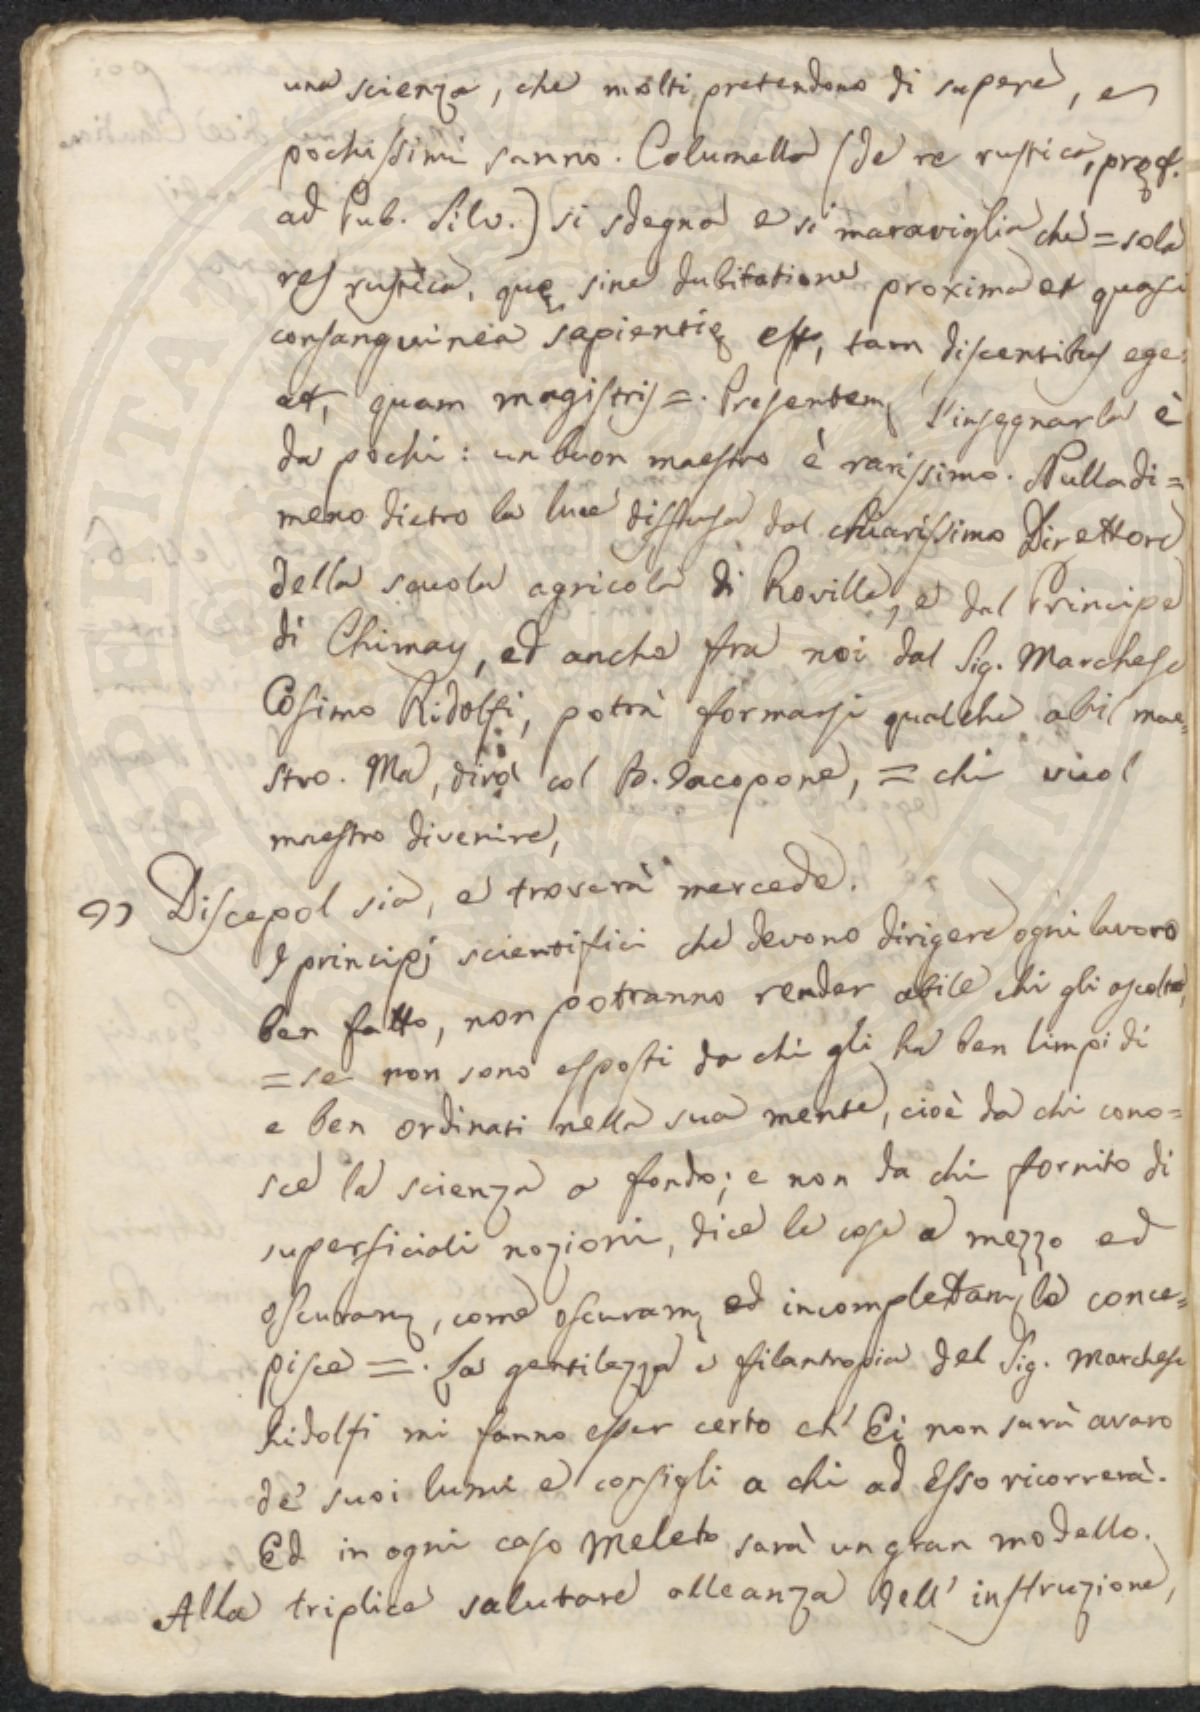 una scienza, che molti pretendono di sapere, e
pochissimi sanno. Columella (de re rustica, pręf.
ad Pub. Silv.) si sdegna e si maraviglia che = sola
res rustica, quę sine dubitatione proxima et quasi
consanguinea sapientię est, tam discentibus ege-
at, quam magistris =. Presentem. l'insegnarla è
da pochi: un buon maestro è rarissimo. Nulladi=
meno dietro la luce diffusa dal chiarissimo Direttore
della scuola agricola di Roville, e dal Principe
di Chimay, ed anche fra noi dal Sig. Marchese
Cosimo Ridolfi, potrà formarsi qualche abil mae=
stro. Ma, dirò col B. Jacopone, = chi vuol
maestro divenire,
" Discepol sia, e troverà mercede.
I principj scientifici che devono dirigere ogni lavoro
ben fatto, non potranno render abile chi gli ascolta,
= se non sono esposti da chi gli ha ben limpidi
e ben ordinati nella sua mente, cioè da chi cono=
sce la scienza a fondo; e non da chi fornito di
superficiali nozioni, dice le cose a mezzo ed
oscuram., come oscuram. ed incomplettam. le conce=
pisce =. La gentilezza e filantropia del Sig. Marchese
Ridolfi mi fanno esser certo ch' Ei non sarà avaro
de' suoi lumi e consigli a chi ad Esso ricorrerà.
Ed in ogni caso Meleto sarà un gran modello.
Alla triplice salutare alleanza dell' instruzione,